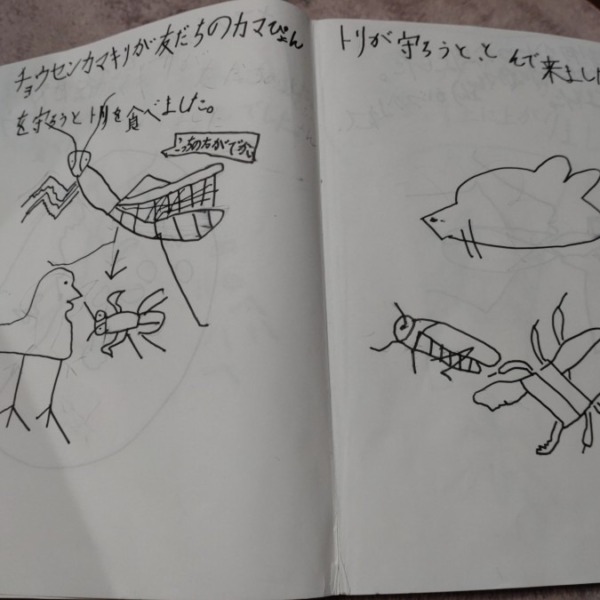 チョウセンカマキリが友だちのカマぴょん
を守ろうとトリを食べました。
こっちの方がでかい
トリが守ろうと、とんで来ました